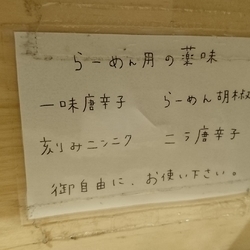 らーめん用の薬味
一味唐辛子 らーめん胡椒
刻みニンニク ニラ唐辛子
御自由に、お使い下さい。